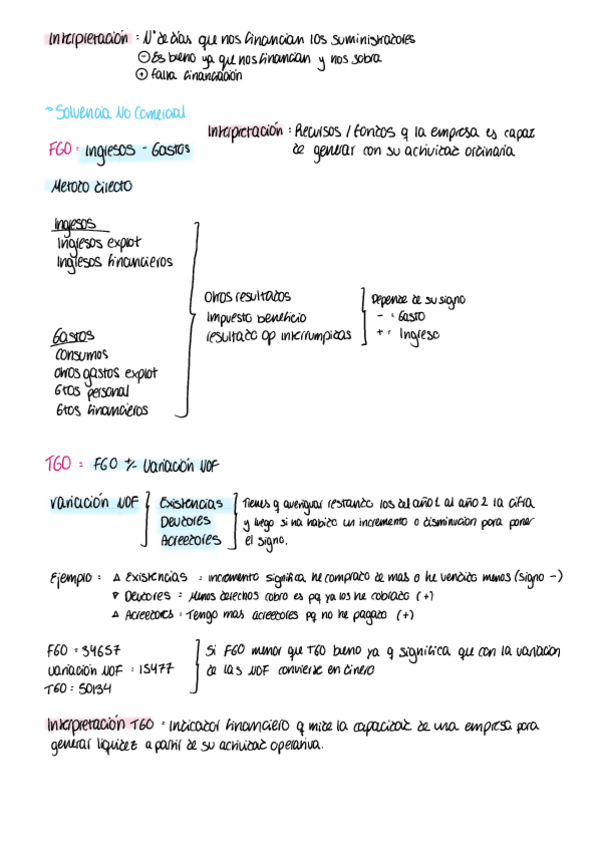 Interpretación : Nº de días que nos financian los suministradores
⊖ Es bueno ya que nos financian y nos sobra
⊕ falta financiación
→ Solvencia No Comercial
Interpretación : Recursos / fondos q la empresa es capaz
de generar con su actividad ordinaria
FGO : Ingresos - Gastos
Metodo directo
Ingresos
Ingresos explot
Ingresos financieros
Otros resultados
impuesto beneficio
resultado op interrumpidas
Depende de su signo
- : Gasto
+ : Ingreso
Gastos
Consumos
otros gastos explot
Gtos personal
Gtos financieros
TGO : FGO +/- Variación NOF
Variación NOF
Existencias
Deudores
Acreedores
Tienes q averiguar restando los del año 1 al año 2 la cifra
y luego si ha habido un incremento o disminucion para poner
el signo.
Ejemplo : ▵ Existencias : incremento significa he comprado de mas o he vendido menos (signo -)
▿ Deudores : Menos derechos cobro es pq ya los he cobrado (+)
▵ Acreedores : Tengo mas acreedores pq no he pagado (+)
FGO : 34657
Variación NOF : 15477
TGO : 50134
Si FGO menor que TGO bueno ya q significa que con la variacion
de las NOF convierse en dinero
Interpretación TGO : Indicador financiero q mide la capacidad de una empresa para
generar liquidez a partir de su actividad operativa.